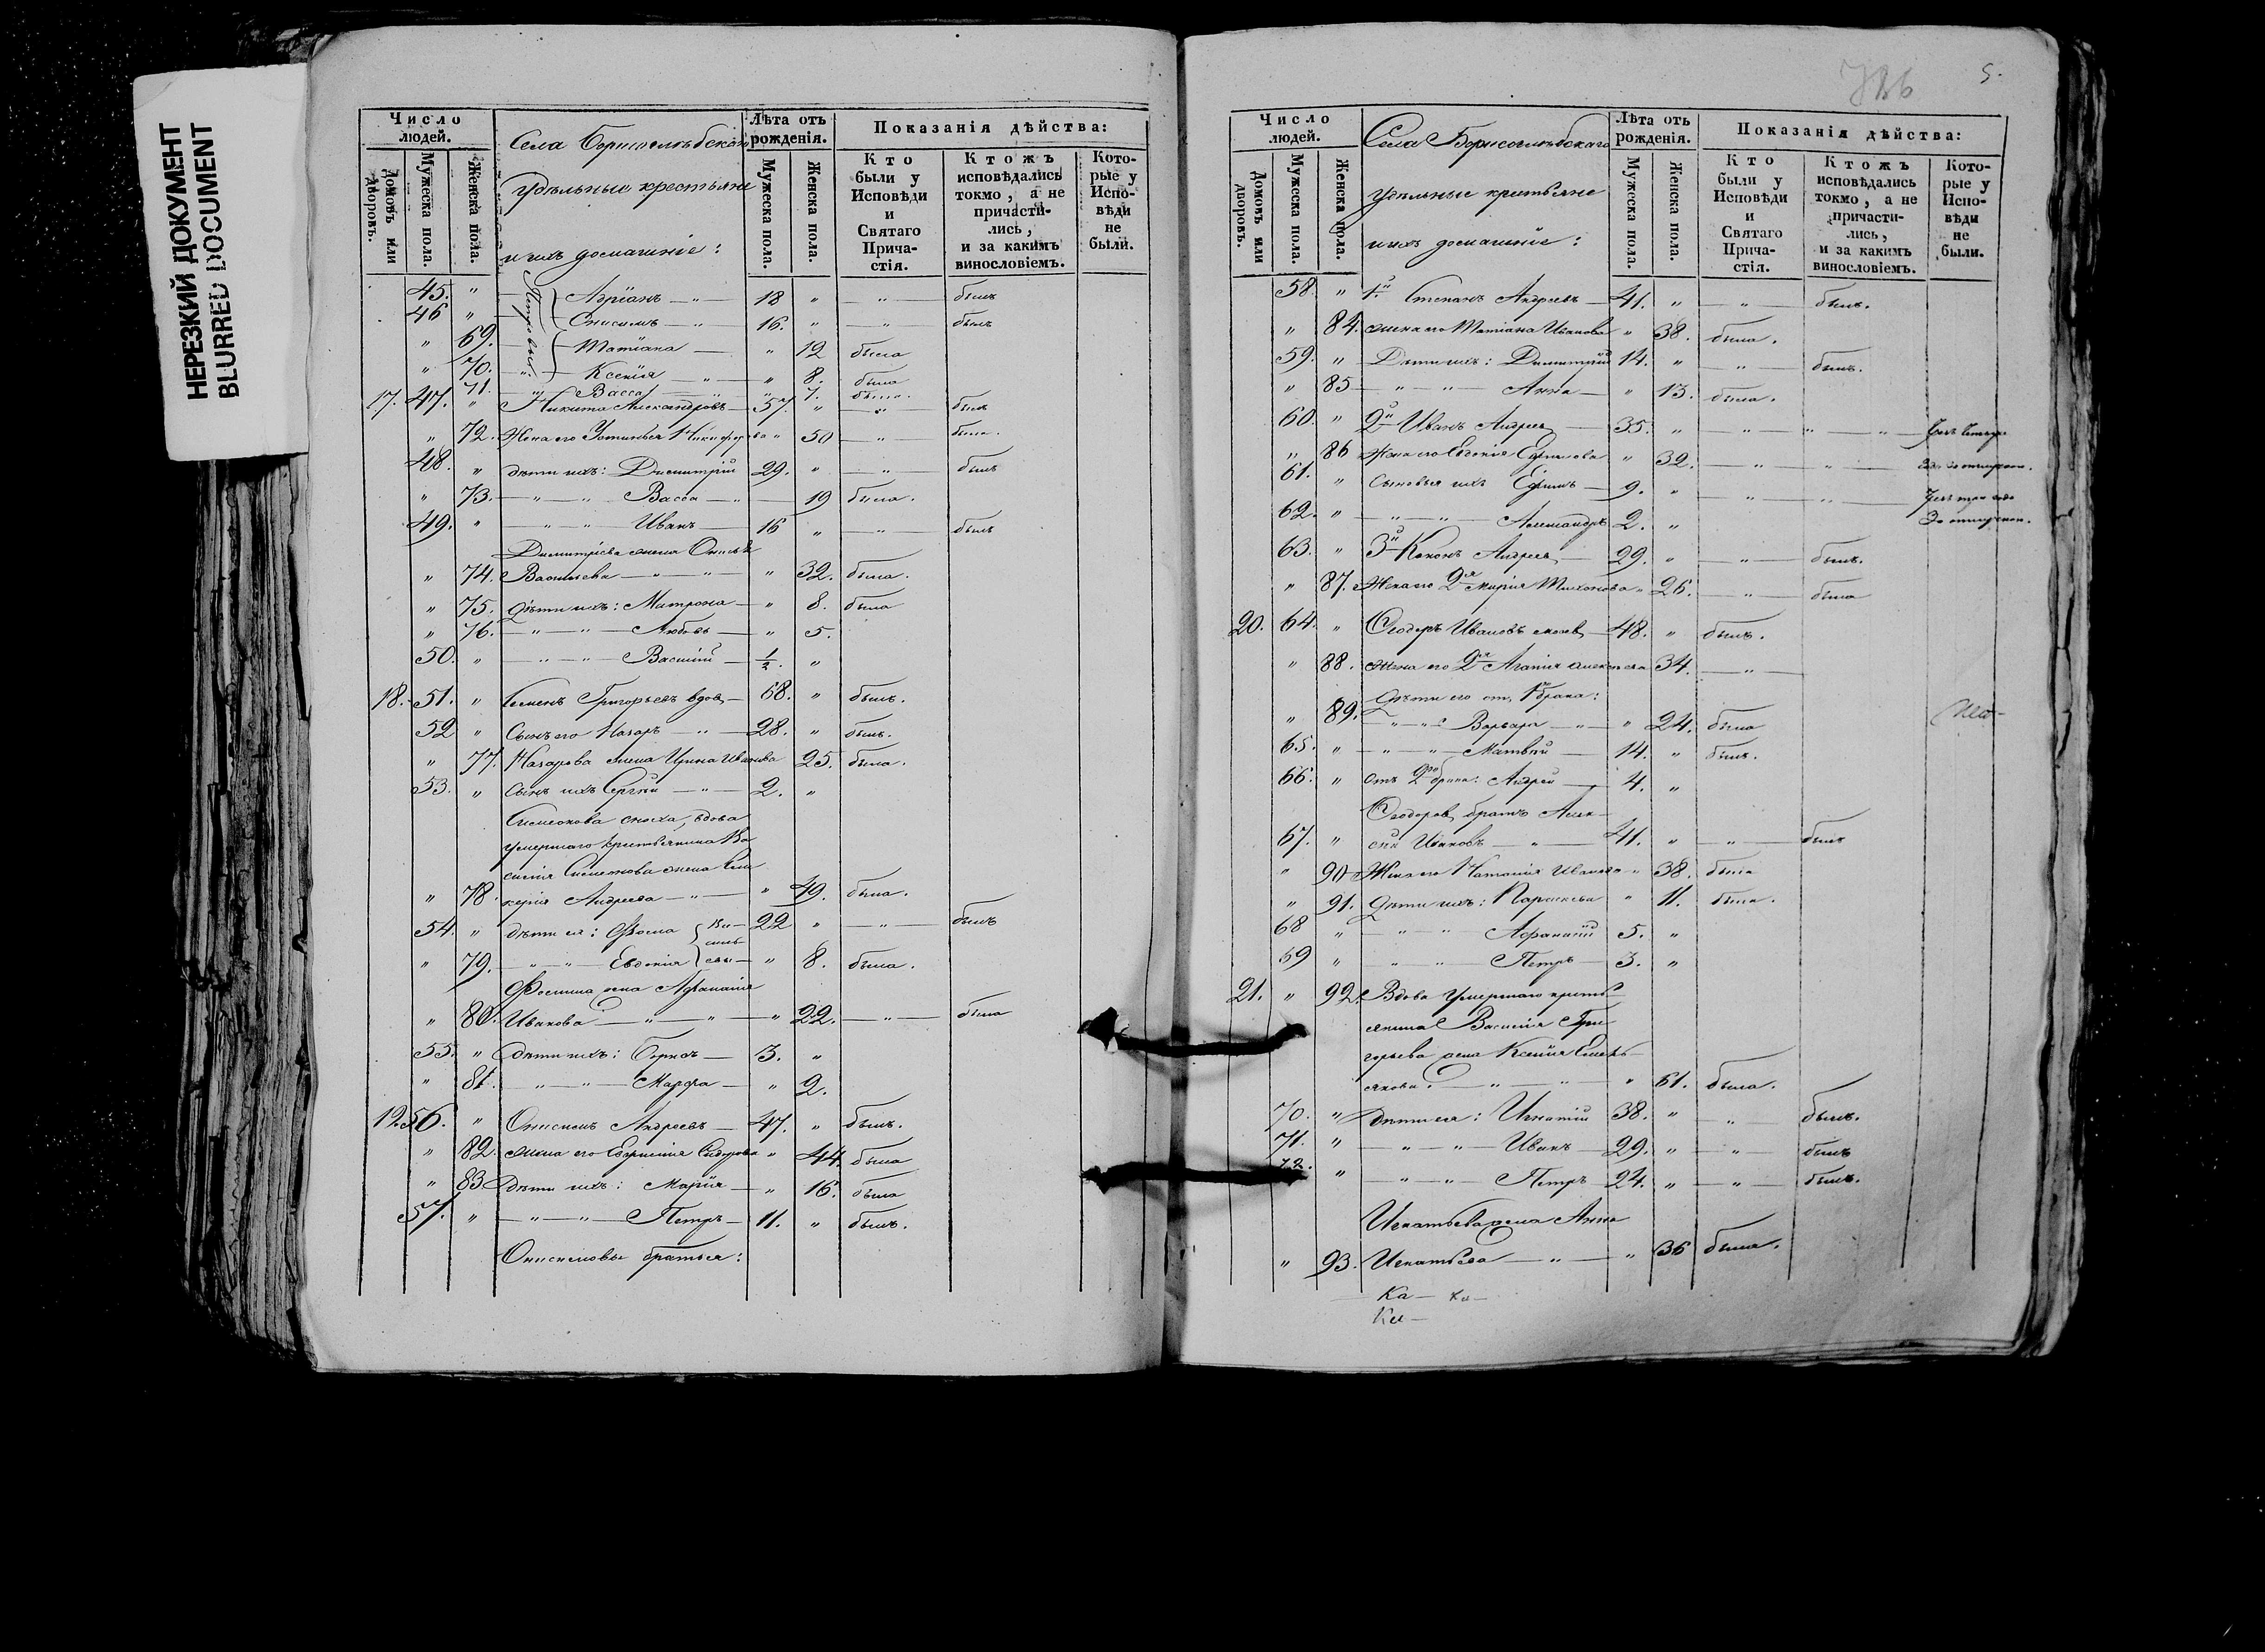 НЕРЕЗКИЙ ДОКУМЕНТ
BLURRED DOCUMENT
Число людей.
Домовъ или дворовъ.
Мужеска пола.
Женска пола.
Села Борисоглѣбскаго
Удѣльные крестьяне
и ихъ домашніе:
Лѣта отъ рожденія.
Мужеска пола.
Женска пола.
Показанія дѣйства:
Кто были у Исповѣди и Святаго Причастія.
Ктожъ исповѣдались токмо, а не причастились, и за какимъ винословіемъ.
Которые у Исповѣди не были.
45. " Петровы Адріанъ — " 18 " — " — былъ
46 " Онисимъ — " 16. " — " — былъ
" 69. Татіана — " 12 была
" 70. " Ксенія — " — " 8. была
" 71. " Васса — " 7. была.
17. 47. " Никита Александровъ — 57. " — " — былъ
" 72. Жена его Устинья Никифорова " 50 — " — была.
48. " дѣти ихъ: Димитрій 29. " — " — былъ
" 73. — " — " Васса — " — 19 была.
49. " — " — " Иванъ — 16 " — " — былъ
Димитріева жена
" 74. Васильева — " — " — " 32. была.
" 75. Дѣти ихъ: Матрона — " 8. была
" 76. — " — " — Любовь — " 5.
50. " — " — " — Василій — 1/2. "
18. 51. " Семенъ Григорьевъ вдов. — 68. " былъ.
52 " Сынъ его Назаръ — " — 28. " былъ.
" 77. Назарова жена Ирина Иванова 25. была.
53. " Сынъ ихъ Сергій — " — 2. "
Симеонова сноха, вдова
умершаго крестьянина Ва
силія Симеонова жена Гли
" 78. керія Андреева — " — " 49. была.
54. " дѣти ея: Ѳома Васильевы — 22 " — " — былъ
" 79. — " — " Евдокія — " 8. была.
Ѳомина жена Аѳанасія
" 80. Иванова — " — " — " 22. — " — была
55. " Дѣти ихъ: Борисъ — 3. "
" 81. — " — " — Марѳа — " 2.
19. 56. " Онисимъ Андреевъ — 47. " былъ.
" 82. жена его Евфимія Сидорова " 44. была
" 83 Дѣти ихъ: Марія — " 16. была
57. " — " — " — Петръ — 11. " былъ.
Онисимовы братья:
5.
Число людей.
Домовъ или дворовъ.
Мужеска пола.
Женска пола.
Села Борисоглѣбскаго
Удѣльные крестьяне
и ихъ домашніе:
Лѣта отъ рожденія.
Мужеска пола.
Женска пола.
Показанія дѣйства:
Кто были у Исповѣди и Святаго Причастія.
Ктожъ исповѣдались токмо, а не причастились, и за какимъ винословіемъ.
Которые у Исповѣди не были.
58. " 1й Степанъ Андреевъ — 41. " — " — былъ.
" 84. жена его Татіана Иванова " 38. была.
59. " Дѣти ихъ: Димитрій 14. " — " — былъ.
" 85 — " — " — Анна — " 13. была.
60. " 2й Иванъ Андреев. — 35. " — " — " — "
" 86 Жена его Евдокія Ефимова " 32. — " — "
61. " Сыновья ихъ Ефимъ — 9. " — " — "
62. " — " — " — Александръ 2. "
63. " 3й Кононъ Андреев. — 29. " — " — былъ.
" 87. Жена его 2я Марія Тихонова " 26. — " — была
20. 64. " Ѳеодоръ Ивановъ — 48. " былъ.
" 88. жена его 2я Агапія Алексѣева 34. — " —
Дѣти его отъ 1го брака:
" 89. — " — " Варвара — " — " 24. была
65. " — " — " — Матвій — 14. " былъ.
66. " Отъ 2го брака: Андрей — 4. "
Ѳеодоров. братъ Алек-
67. " сій Ивановъ — " — 41. " — " — былъ
" 90 Жена его Наталія Иванова " 38. была
" 91. Дѣти ихъ: Параскева " 11. была.
68 " — " — " Аѳанасій 5. "
69 " — " — " — Петръ — 3. "
21. " 92. Вдова умершаго кресть-
янина Василія Гри
горьева жена Ксенія Емель
янова. — " — " — " 61. была.
70. " Дѣти ея: Игнатій 38. " — " — былъ.
71. " — " — " — Иванъ — 29. " — " — былъ
72. " — " — " — Петръ — 24. " — " — былъ.
Игнатьева жена Анна
" 93. Игнатьева — " — " 36 была.
Ка —